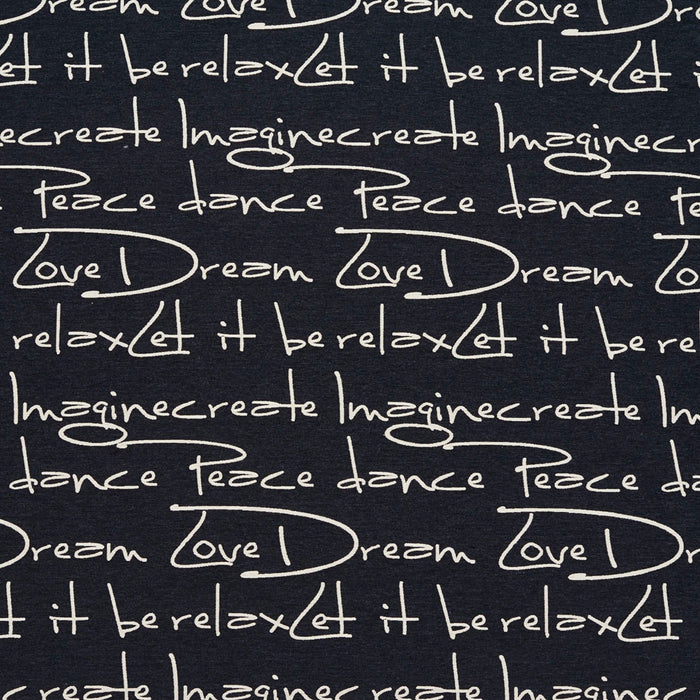 Dream Love Dream Love Dr
et it be relax Let it be relax Let i
ecreate Imagine create Imagine cr
Peace dance Peace dance Pe
Love Dream Love Dream Lo
relax Let it be relax Let it be re
Imagine create Imagine create Im
dance Peace dance Peace da
Dream Love Dream Love Dream
et it be relax Let it be relax Let
create Imagine create Imagine